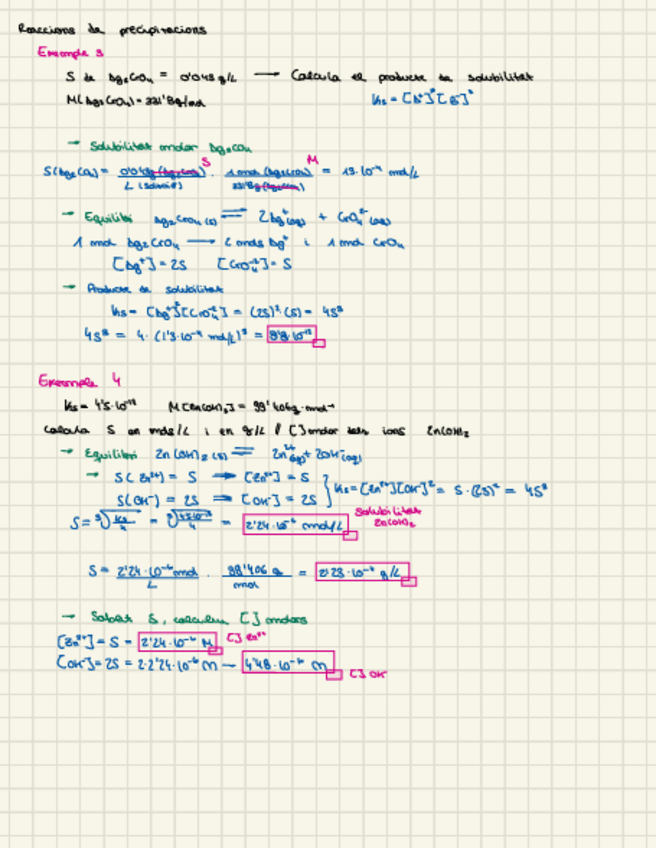 Reaccions de precipitacions
Exemple 3
S de Ag₂CrO₄ = 0'043 g/L → Calcula el producte de solubilitat
M(Ag₂CrO₄) = 331'8 g/mol Ks = [A⁺]ᵃ[B⁻]ᵇ
→ Solubilitat molar Ag₂CrO₄
S M
S(Ag₂CrO₄) = 0'043g (Ag₂CrO₄) / L (Solució) · 1 mol (Ag₂CrO₄) / 331'8g (Ag₂CrO₄) = 1'3·10⁻⁴ mol/L
→ Equilibri Ag₂CrO₄ (s) ⇌ 2Ag⁺(aq) + CrO₄²⁻(aq)
1 mol Ag₂CrO₄ → 2 mols Ag⁺ i 1 mol CrO₄
[Ag⁺] = 2S [CrO₄²⁻] = S
→ Producte de solubilitat
Ks = [Ag⁺]²[CrO₄²⁻] = (2S)²·(S) = 4S³
4S³ = 4·(1'3·10⁻⁴ mol/L)³ = 8'8·10⁻¹²
Exemple 4
Ks = 4'5·10⁻¹⁷ M[Zn(OH)₂] = 99'406g·mol⁻¹
Calcula S en mols/L i en g/L // [] molar dels ions Zn(OH)₂
→ Equilibri Zn(OH)₂ (s) ⇌ Zn²⁺(aq) + 2OH⁻(aq)
→ S(Zn²⁺) = S ⇒ [Zn²⁺] = S
S(OH⁻) = 2S ⇒ [OH⁻] = 2S } Ks = [Zn²⁺][OH⁻]² = S·(2S)² = 4S³
S = ³√(Ks/4) = ³√(4'5·10⁻¹⁷/4) = 2'24·10⁻⁶ mol/L Solubilitat Zn(OH)₂
S = 2'24·10⁻⁶ mol / L · 99'406 g / mol = 2'23·10⁻⁴ g/L
→ Sabent S, calculem [] molars
[Zn²⁺] = S = 2'24·10⁻⁶ M [] Zn²⁺
[OH⁻] = 2S = 2·2'24·10⁻⁶ M → 4'48·10⁻⁶ M [] OH⁻